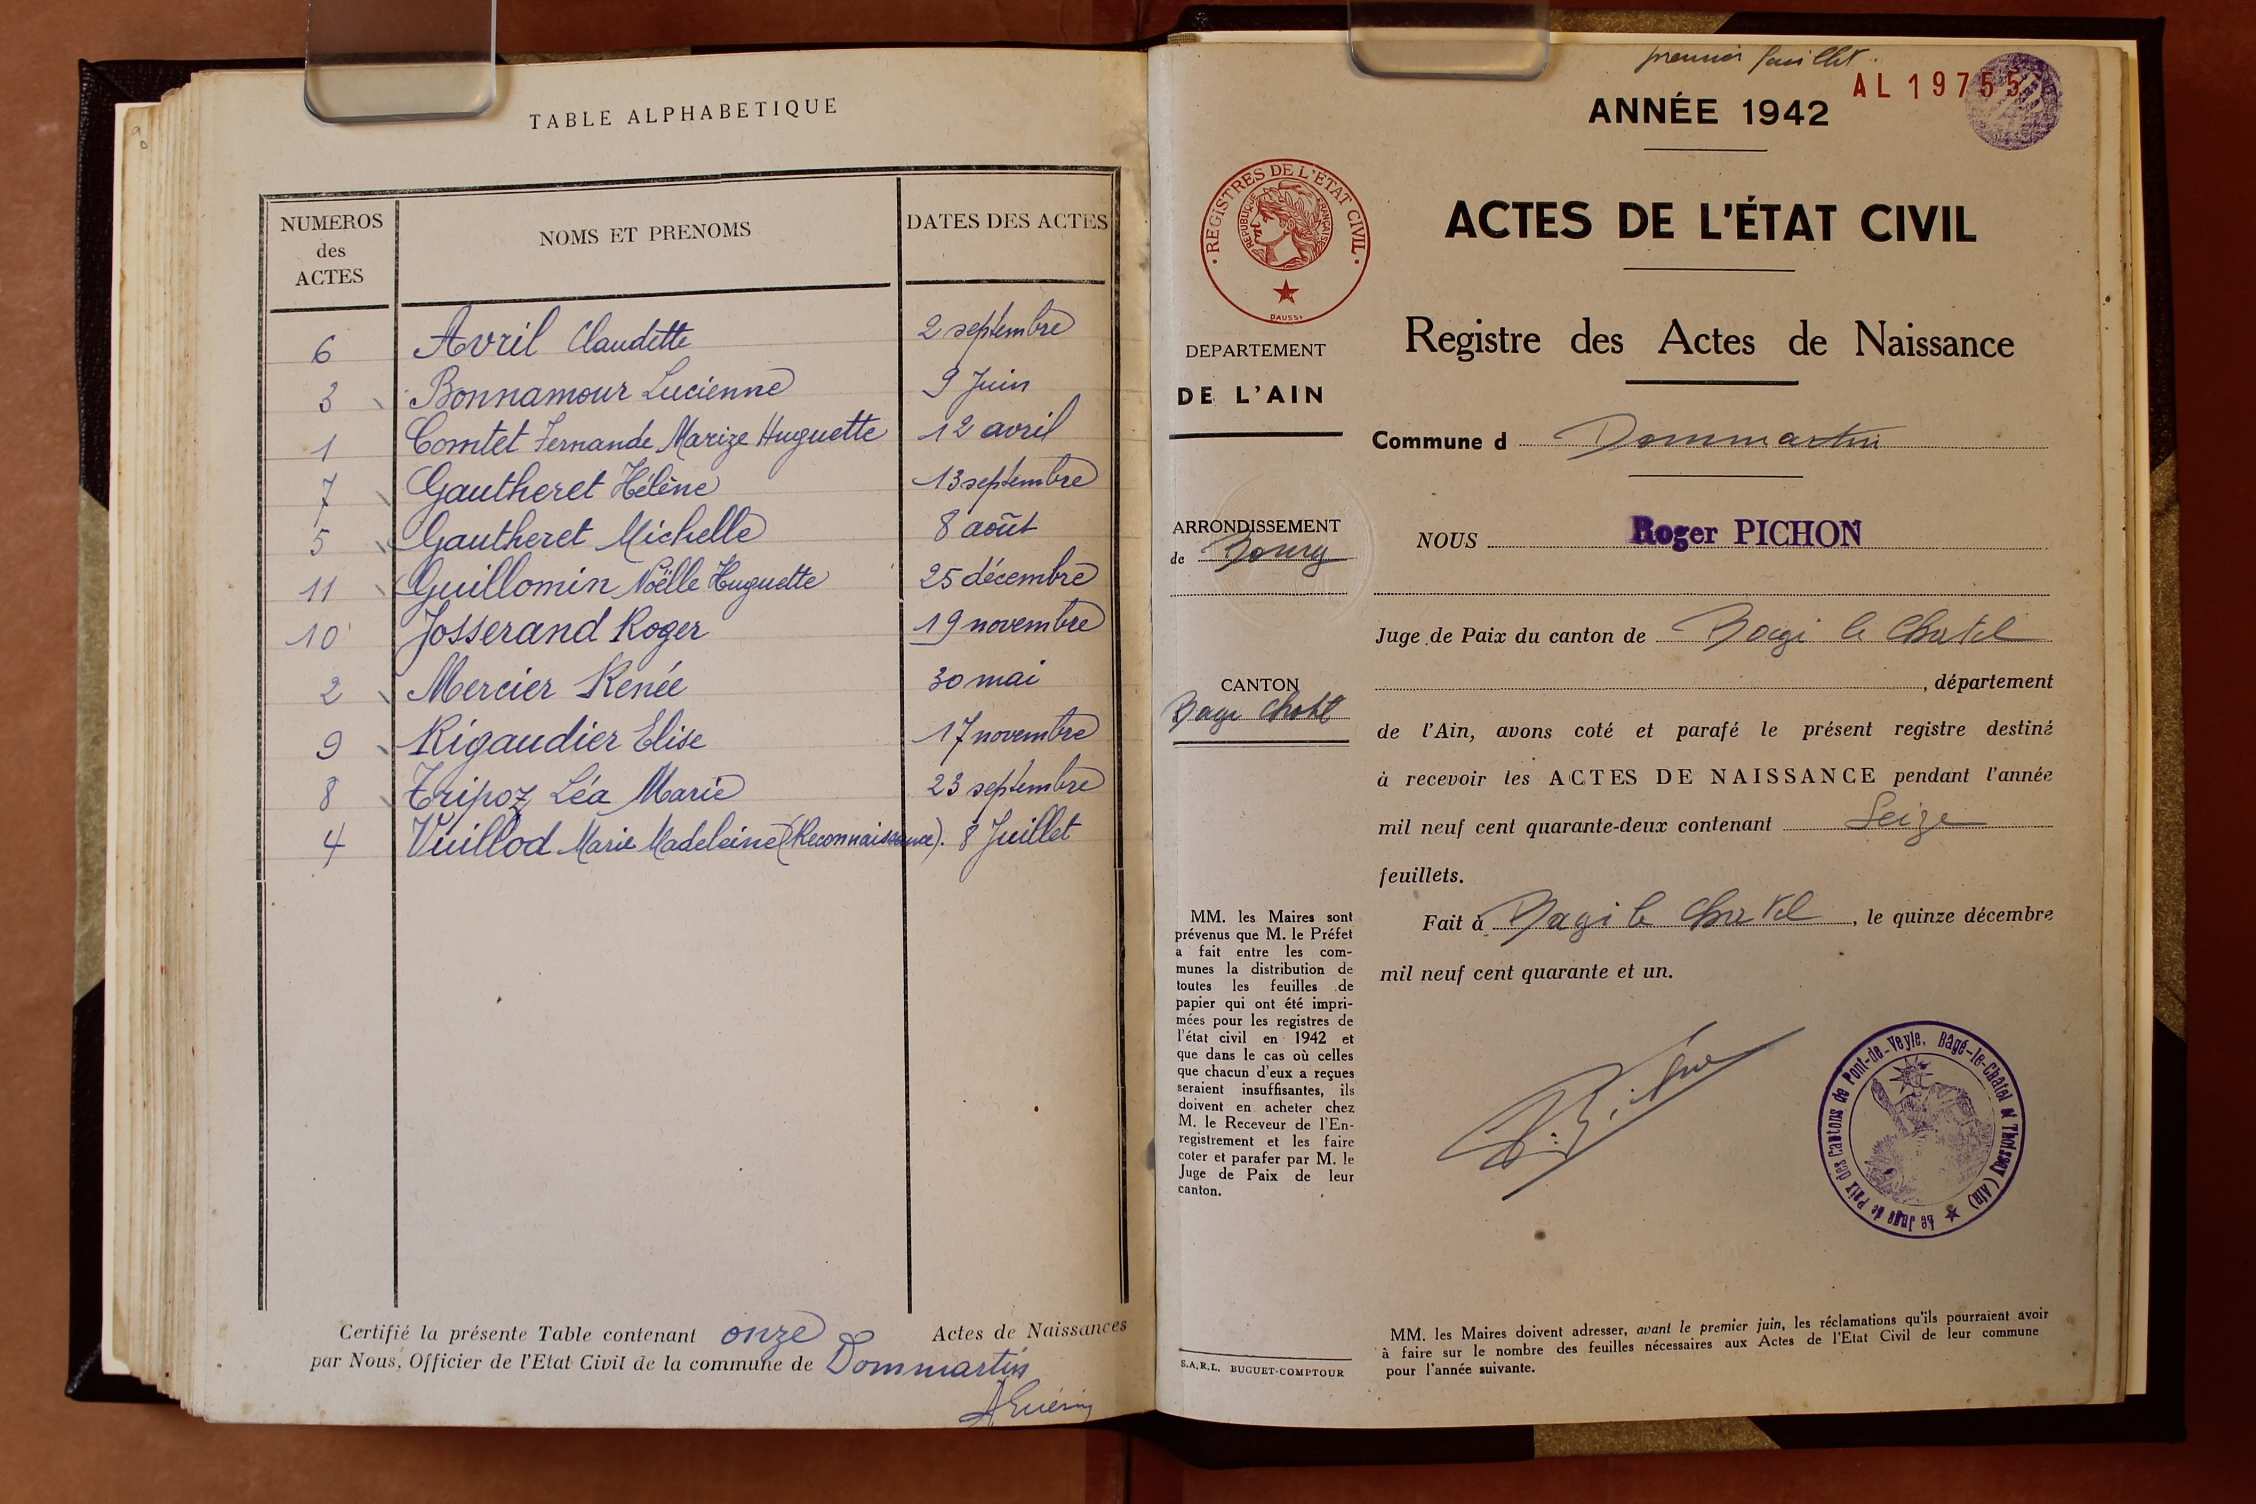 TABLE ALPHABETIQUE
NUMEROS
des
ACTES
NOMS ET PRENOMS
DATES DES ACTES
6 Avril Claudette 2 septembre
3 Bonnamour Lucienne 9 Juin
1 Comtet Fernande Marize Huguette 12 avril
7 Gautheret Hélène 13 septembre
5 Gautheret Michelle 8 août
11 Guillomin Noëlle Huguette 25 décembre
10 Josserand Roger 19 novembre
2 Mercier Renée 30 mai
9 Rigaudier Elise 17 novembre
8 Tripoz Léa Marie 23 septembre
4 Vuillod Marie Madeleine (Reconnaissance). 8 Juillet
Certifié la présente Table contenant onze Actes de Naissances
par Nous, Officier de l'Etat Civil de la commune de Dommartin
premier feuillet.
AL 19755
ANNÉE 1942
ACTES DE L'ÉTAT CIVIL
Registre des Actes de Naissance
REGISTRES DE L'ETAT CIVIL
REPUBLIQUE FRANÇAISE
DAUSSY
DEPARTEMENT
DE L'AIN
ARRONDISSEMENT
de Bourg
CANTON
Bage Chatel
MM. les Maires sont
prévenus que M. le Préfet
a fait entre les com-
munes la distribution de
toutes les feuilles de
papier qui ont été impri-
mées pour les registres de
l'état civil en 1942 et
que dans le cas où celles
que chacun d'eux a reçues
seraient insuffisantes, ils
doivent en acheter chez
M. le Receveur de l'En-
registrement et les faire
coter et parafer par M. le
Juge de Paix de leur
canton.
S.A.R.L. BUGUET-COMPTOUR
Commune d Dommartin
NOUS Roger PICHON
Juge de Paix du canton de Bagé le Chatel
, département
de l'Ain, avons coté et parafé le présent registre destiné
à recevoir les ACTES DE NAISSANCE pendant l'année
mil neuf cent quarante-deux contenant Seize
feuillets.
Fait à Bagé le Chatel, le quinze décembre
mil neuf cent quarante et un.
Le Juge de Paix des Cantons de Pont-de-Veyle, Bagé-le-Châtel et Thoissey (Ain)
MM. les Maires doivent adresser, avant le premier juin, les réclamations qu'ils pourraient avoir
à faire sur le nombre des feuilles nécessaires aux Actes de l'Etat Civil de leur commune
pour l'année suivante.